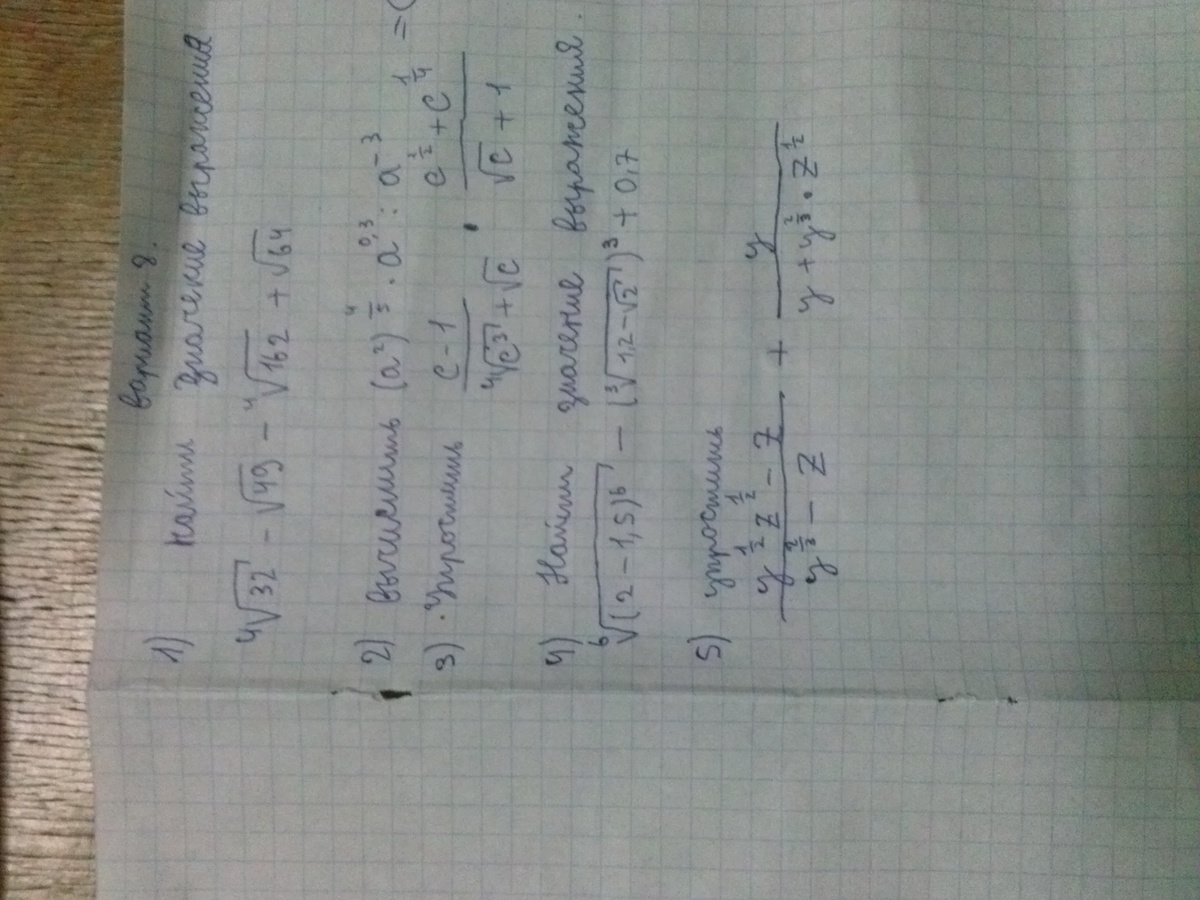 вариант 8.
1) Найти значение выражения
⁴√32 - √49 - ⁴√162 + √64
2) вычислить (a²)^(4/5) · a^0,3 : a^-3 = (
3) Упростить (c - 1)/(⁴√c³ + √c) · (c^(1/2) + c^(1/4))/(√c + 1)
4) Найти значение выражения.
⁶√(2 - 1,5)⁶ - (³√1,2-√2)³ + 0,7
5) упростить
(y^(1/2) z^(1/2) - z)/(y^(2/3) - z) + y/(y + y^(2/3) · z^(1/2))